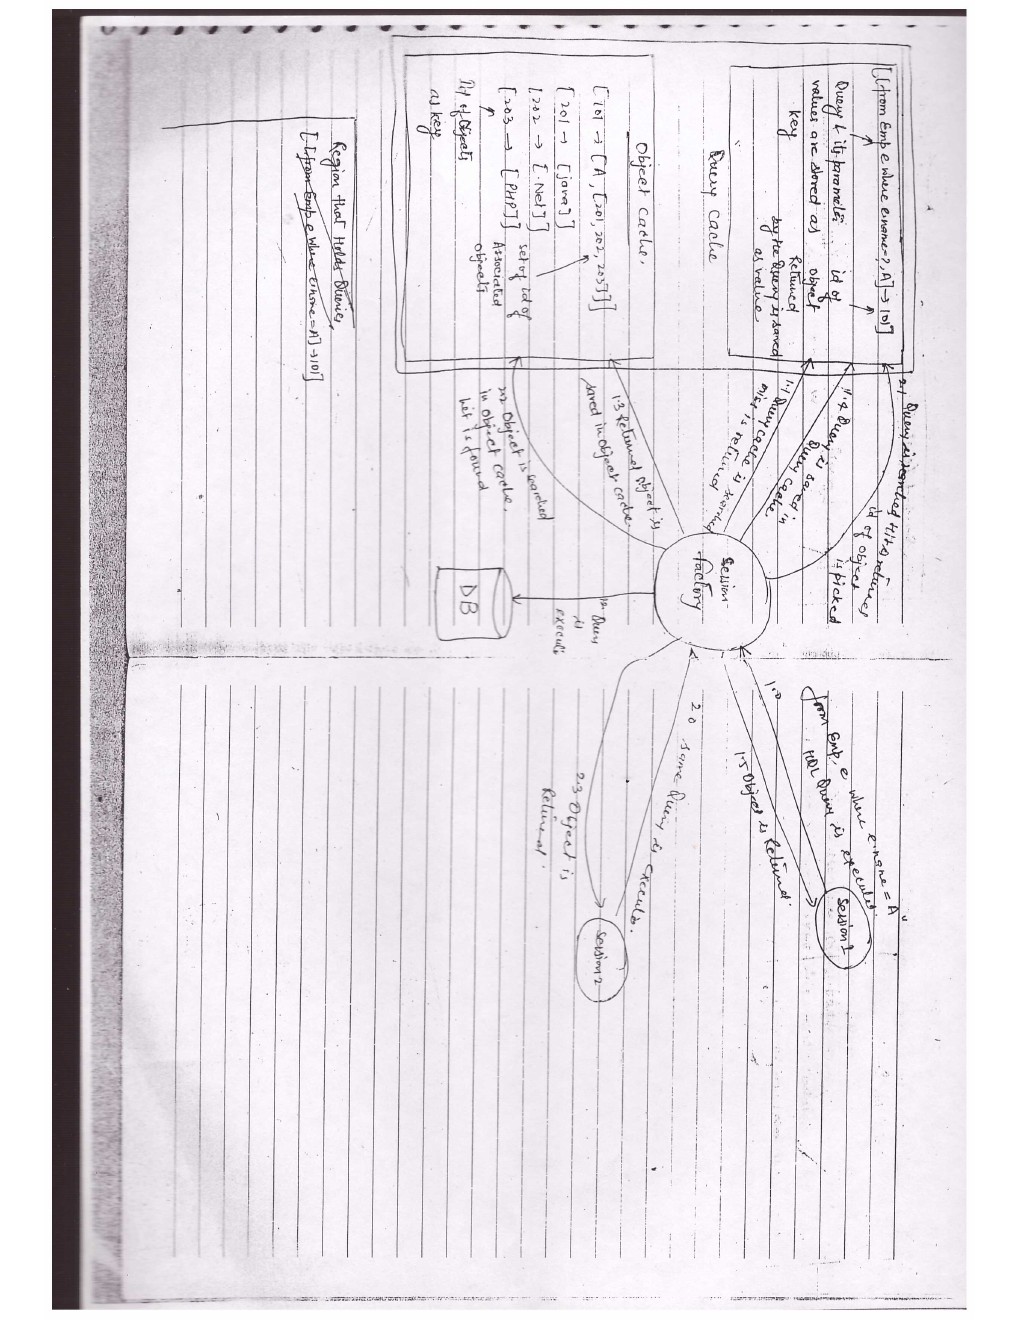 [[from Emp e where e.name=?, A] → 101]
Query & its parameter
values are stored as
key
id of
object
Returned
by the Query is saved
as value
Query Cache
Object Cache.
[101 → [A, [201, 202, 203]]]
[201 → [java]]
[202 → [.Net]]
[203 → [PHP]]
Id of Objects
as key
set of id of
Associated
objects
Region that Holds Queries
[[from Emp e where e.name = A] → 101]
2.1 Query is searched Hit is returned
id of object
is picked
1.4 Query is
saved in
Query cache
1.1 Query cache is searched
miss is returned
1.3 Returned object is
saved in object cache
2.2 Object is searched
in object cache.
hit is found
Session
factory
1.2 Query
is
DB
1.0
from Emp e where e.name = A
HQL Query is executed.
1.5 Object is Returned.
Session 1
2.0 same Query is
2.3 Object is
Session 2